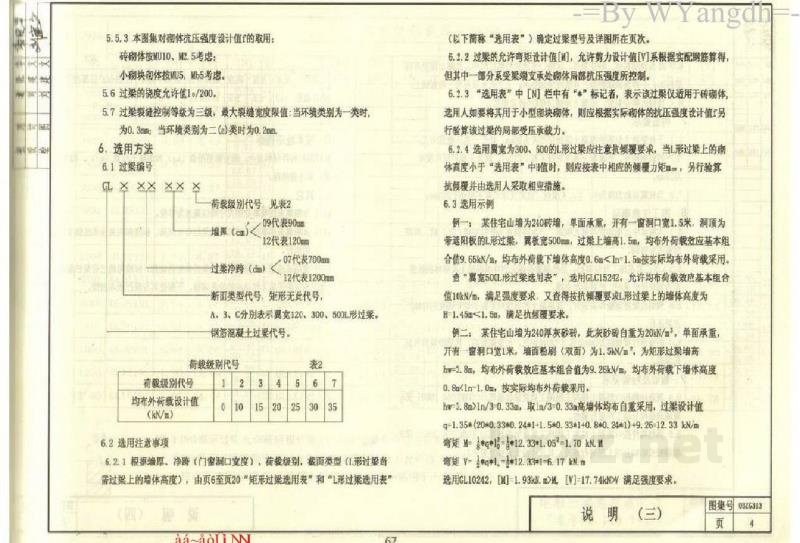 -=By WYangdh=-
5.5.3 本图集对砌体抗压强度设计值f的取用:
砖砌体按MU10、M2.5考虑;
小砌块砌体按MU5、Mb5考虑。
5.6 过梁的挠度允许值l₀/200。
5.7 过梁裂缝控制等级为三级,最大裂缝宽度限值:当环境类别为一类时,
为0.3mm;当环境类别为二(a)类时为0.2mm。
6. 选用方法
6.1 过梁编号
GL × ×× ×× ×
荷载级别代号 见表2
墙厚(cm) 09代表90mm
12代表120mm
过梁净跨(dm) 07代表700mm
12代表1200mm
断面类型代号 矩形无此代号,
A、B、C分别表示翼宽120、300、500L形过梁。
钢筋混凝土过梁代号。
荷载级别代号 表2
荷载级别代号 1 2 3 4 5 6 7
均布外荷载设计值
(kN/m) 0 10 15 20 25 30 35
6.2 选用注意事项
6.2.1 根据墙厚、净跨(门窗洞口宽度)、荷载级别、截面类型(L形过梁尚
需过梁上的墙体高度),由页6至页20“矩形过梁选用表”和“L形过梁选用表”
(以下简称“选用表”)确定过梁型号及详图所在页次。
6.2.2 过梁的允许弯矩设计值[M],允许剪力设计值[V]系根据实配钢筋算得,
但其中一部分系受梁端支承处砌体局部抗压强度所控制。
6.2.3 “选用表”中[N]栏中有“*”标记者,表示该过梁仅适用于砖砌体,
选用人如要将其用于小型砌块砌体,则应根据实际砌体的抗压强度设计值f另
行验算该过梁的局部受压承载力。
6.2.4 选用翼宽为300、500的L形过梁应注意抗倾覆要求,当L形过梁上的砌
体高度小于“选用表”中H值时,则应按表中相应的倾覆力矩,另行验算
抗倾覆并由选用人采取相应措施。
6.3 选用示例
例一: 某住宅山墙为240砖墙,单面承重,开有一窗洞口宽1.5米,洞顶为
带遮阳板的L形过梁,翼板宽500mm,过梁上墙高1.5m,均布外荷载效应基本组
合值9.65kN/m,均布外荷载下墙体高度0.6m<ln=1.5m按实际均布外荷载采用。
查“翼宽500L形过梁选用表”,选用GLC15242,允许均布荷载效应基本组合
值10kN/m,满足强度要求。又查得按抗倾覆要求L形过梁上的墙体高度为
H=1.45m<1.5m,满足抗倾覆要求。
例二: 某住宅山墙为240厚灰砂砖,此灰砂砖自重为20kN/m³,单面承重,
开有一窗洞口宽1米,墙面粉刷(双面)为1.5kN/m²,为矩形过梁墙高
hw=0.8m,均布外荷载效应基本组合值为9.26kN/m,均布外荷载下墙体高度
0.8m<ln=1.0m,按实际均布外荷载采用。
hw=0.8m>ln/3=0.33m,取ln/3=0.33m高墙体均布自重采用,过梁设计值
q=1.35*(20*0.33*0.24*1+1.5*0.33*1+0.8*0.24*1)+9.26=12.33 kN/m
弯矩 M= ⅛*q*l₀²=⅛*12.33*1.05²=1.70 kN.M
剪矩 V= ½*q*lₙ=½*12.33*1=6.17 kN.m
选用GL10242,[M]=1.93kN.m>M,[V]=17.74kN>V 满足强度要求。
说 明 (三)
图集号 03G313
页 4
bzxz.net
67